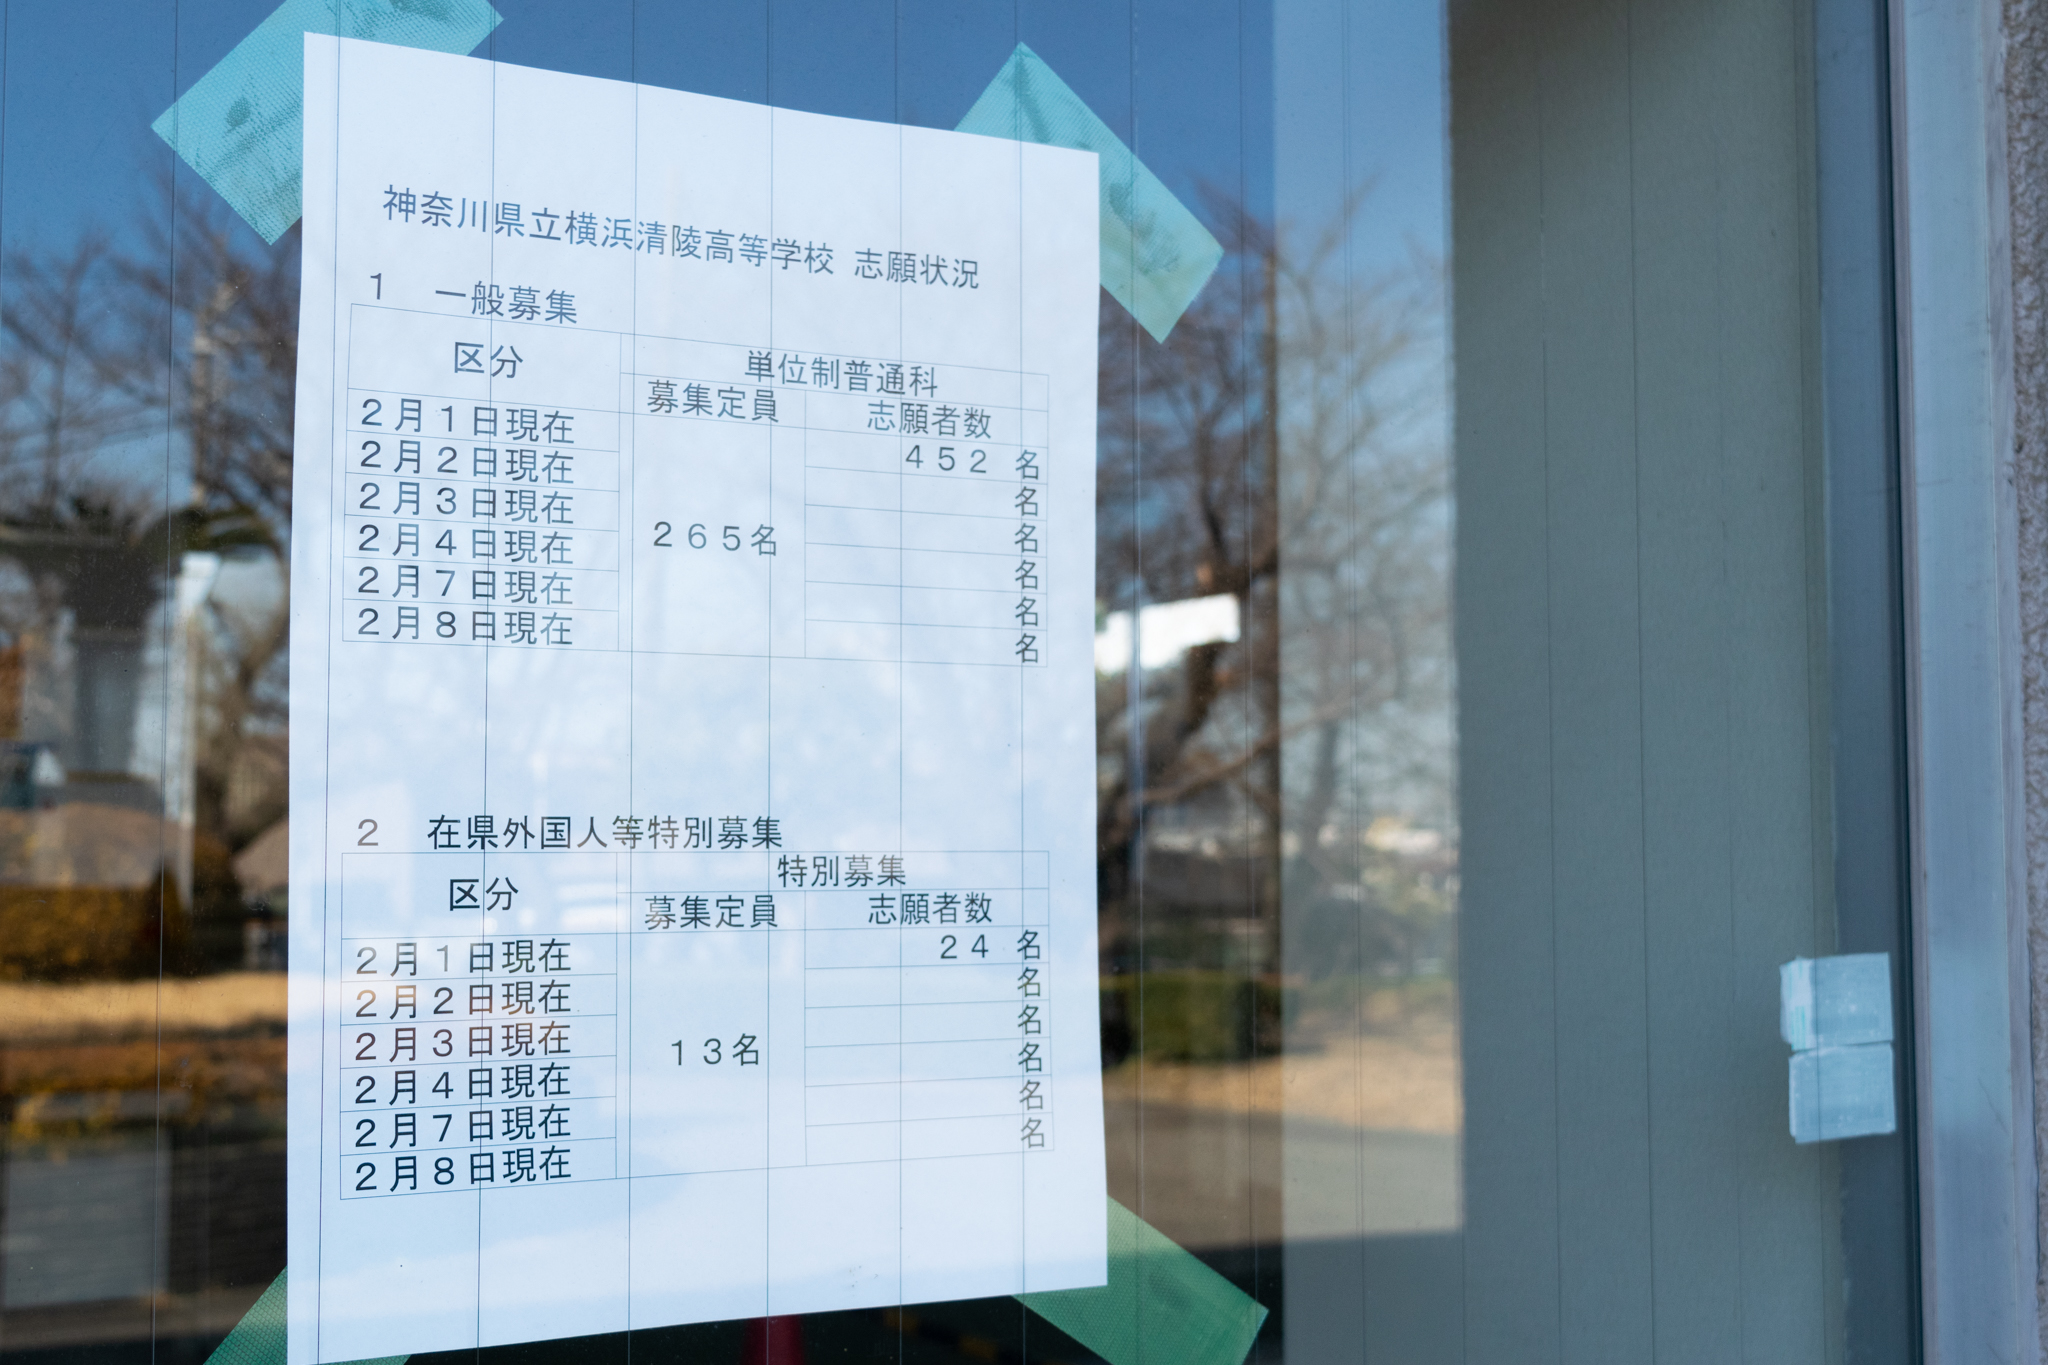 神奈川県立横浜清陵高等学校 志願状況
1 一般募集
区分 単位制普通科
募集定員 志願者数
2月1日現在 452 名
2月2日現在 名
2月3日現在 名
2月4日現在 265名 名
2月7日現在 名
2月8日現在 名
2 在県外国人等特別募集
区分 特別募集
募集定員 志願者数
2月1日現在 24 名
2月2日現在 名
2月3日現在 名
2月4日現在 13名 名
2月7日現在 名
2月8日現在 名